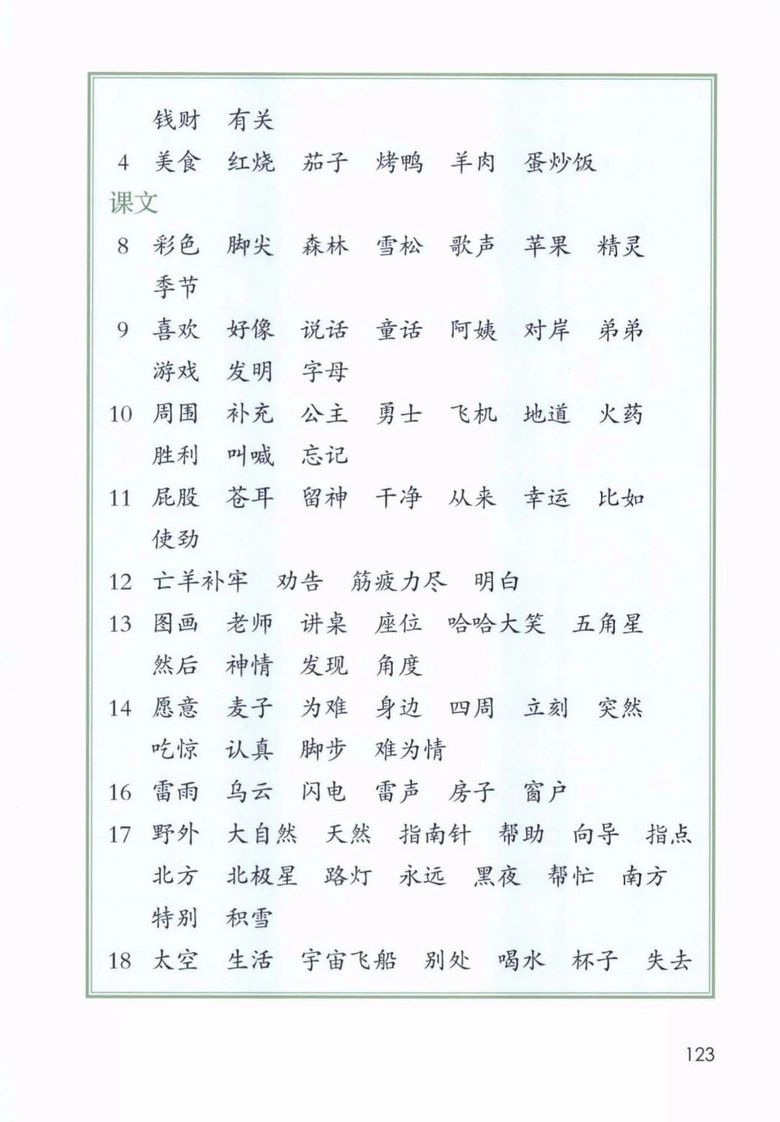 钱财 有关
4 美食 红烧 茄子 烤鸭 羊肉 蛋炒饭
课文
8 彩色 脚尖 森林 雪松 歌声 苹果 精灵
季节
9 喜欢 好像 说话 童话 阿姨 对岸 弟弟
游戏 发明 字母
10 周围 补充 公主 勇士 飞机 地道 火药
胜利 叫喊 忘记
11 屁股 苍耳 留神 干净 从来 幸运 比如
使劲
12 亡羊补牢 劝告 筋疲力尽 明白
13 图画 老师 讲桌 座位 哈哈大笑 五角星
然后 神情 发现 角度
14 愿意 麦子 为难 身边 四周 立刻 突然
吃惊 认真 脚步 难为情
16 雷雨 乌云 闪电 雷声 房子 窗户
17 野外 大自然 天然 指南针 帮助 向导 指点
北方 北极星 路灯 永远 黑夜 帮忙 南方
特别 积雪
18 太空 生活 宇宙飞船 别处 喝水 杯子 失去
123